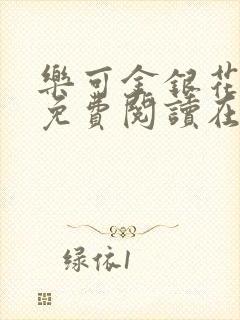 樂可金銀花
免費閱讀在
绿依1